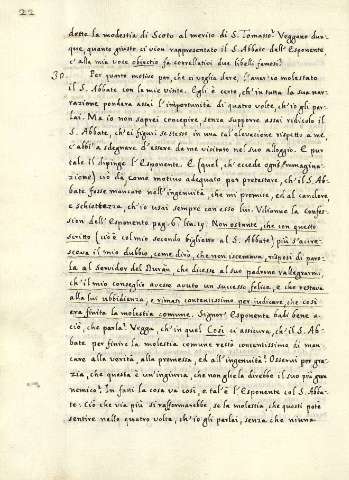 22
detta la modestia di Scoto al merito di S. Tomaso? Veggano dun-
que, quanto giusto ci vien rappresentato il S. Abbate dell' Esponente
e alla mia voce obiectio fa correlativi due libelli famosi?
30. Per quanto motivo poi, che si voglia dare, l'aver io molestato
il S. Abbate con la mia visita. Egli è certo, ch'in tutta la sua nar-
razione pondera assai l'importunità di quatro volte, ch'io gli par-
lai. Ma io non saprei concepire senza supporre assai ridicolo il
S. Abbate, ch'ei figuri se stesso in una tal elevazione rispetto a me,
ch'abbia a sdegnare d'essere da me visitato nel suo alloggio. E pur
tale il dipinge l'Esponente. E (quel, ch'eccede ogni immagina-
zione) ciò dà come motivo adequato per protestare, ch'il S. Ab-
bate fosse mancato nell'ingenuità, che mi promise, ed al candore,
e schiettezza, ch'io usai sempre con esso lui. Viltanne la Confes-
sion dell' Esponente pag. 6. lin. 19. Non ostante, che con questo
scritto (cio è col mio secondo biglietto al S. Abbate) più s'accre-
sceva il mio dubbio, come dirò, che non iscemava, risposi di paro-
la al Servidor del Buran, che dicesse al suo padrone rallegrarmi,
ch'il mio consiglio avesse avuto un successo felice, e che restava
alla lui ubbidenza, e rimasi contentissimo per judicare, che così
era finita la molestia comune. Signor Esponente badi bene a
ciò, che parla? Vegga, ch'in quel Così ci assicura, ch'il S. Ab-
bate per finire la molestia comune restò contentissimo di man-
care alla verità, alla promessa, ed all'ingenuità? Osservi per gra-
zia, che questa è un'ingiuria, che non gliela direbbe il suo più gran
nemico? In fatti la cosa va così, e tal'è l'Esponente col S. Abba-
te: Ciò che via più si raffermarebbe, se la molestia, che questi potè
sentire nelle quatro volte, ch'io gli parlai, senza che niuna